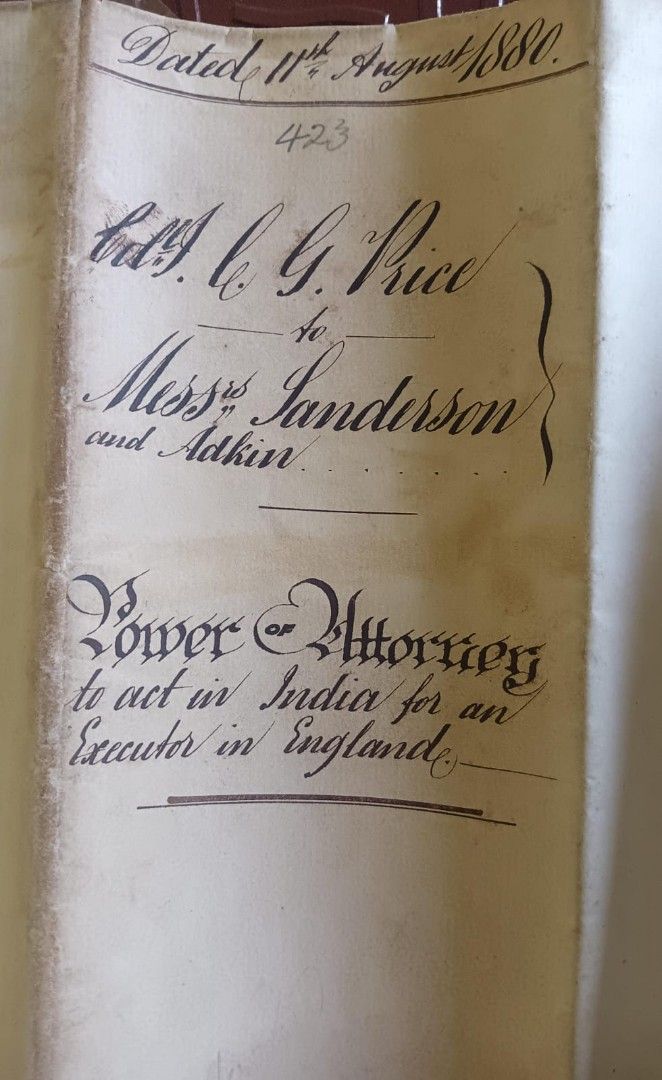 Dated 11th August 1880.
423
Colll. J. C. G. Price
to
Messrs Sanderson
and Adkin . . . . . . .
Power OF Attorney
to act in India for an
Executor in England.